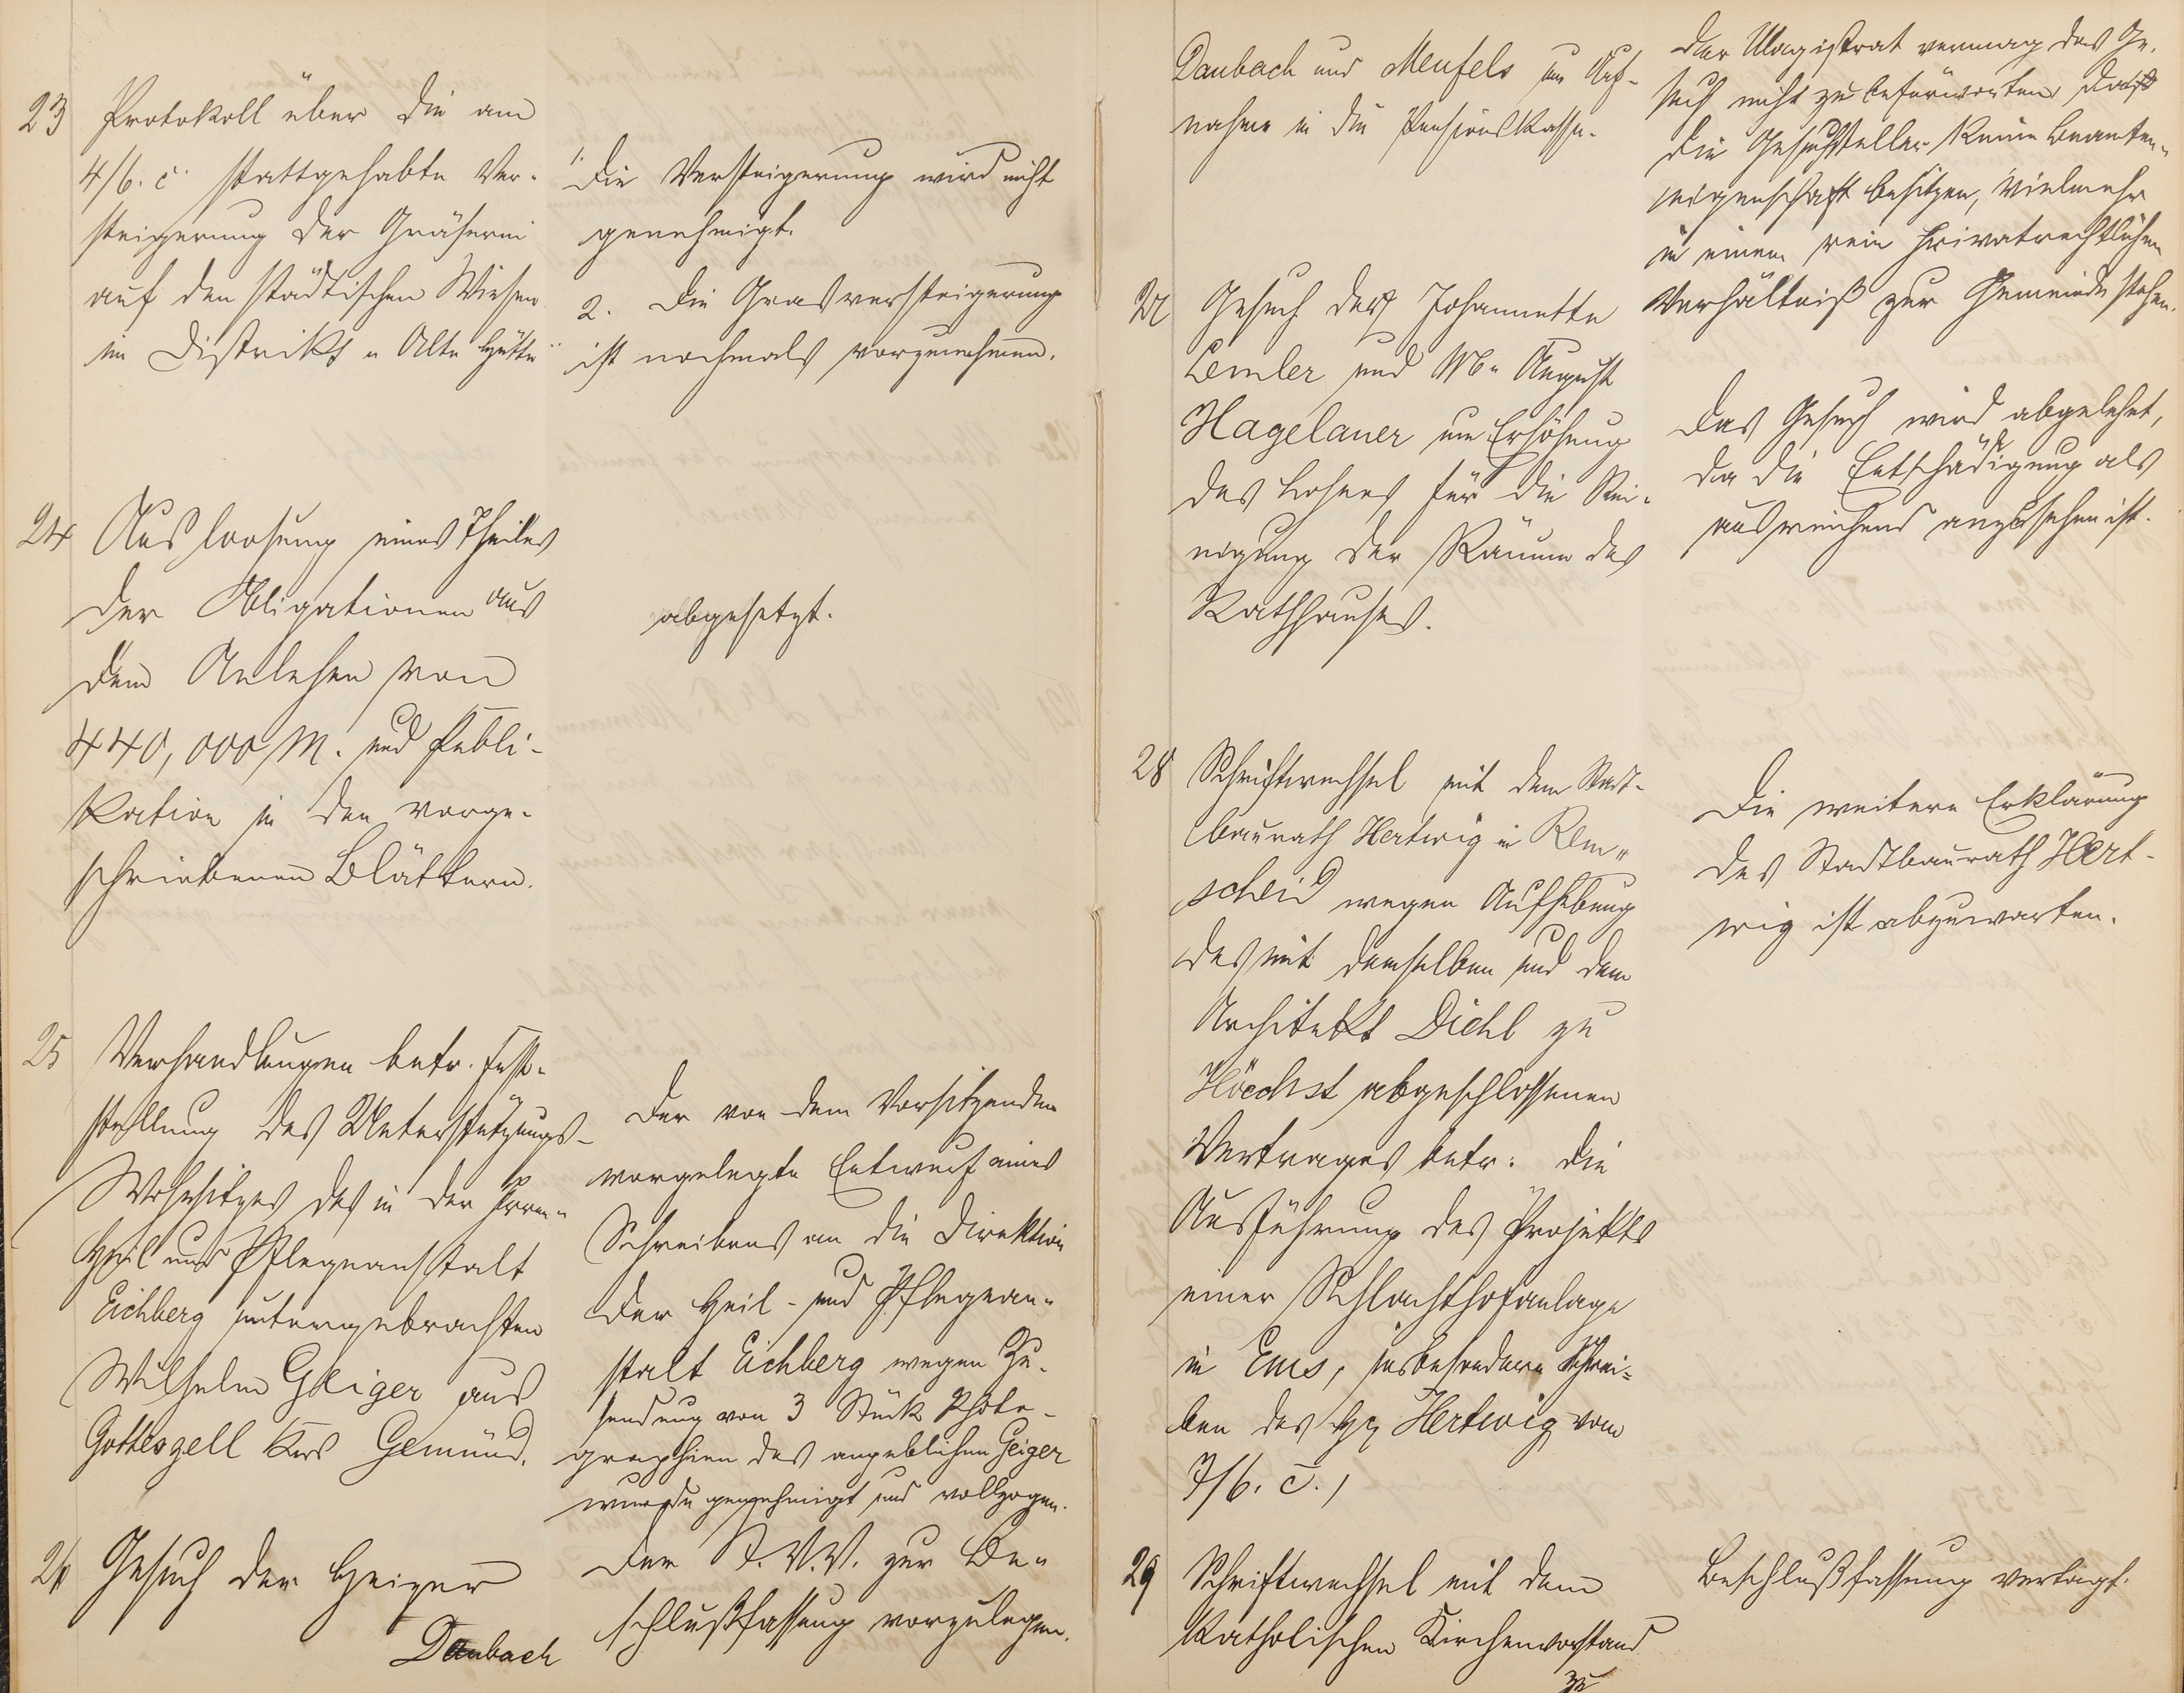 23 Protokoll über die am
4/6. c. stattgehabte Ver-
steigerung der Gräserei
auf den städtischen Wiesen
im Distrikt „Alte Hütte"
1. Die Versteigerung wird nicht
genehmigt.
2. Die Grasversteigerung
ist nochmals vorzunehmen.
24 Ausloosung eines Theiles
der Obligationen aus
dem Anlehen von
440,000 M. und Publi-
kation in den vorge-
schriebenen Blättern.
abgesetzt.
25 Verhandlungen betr. Fest-
stellung des Unterstützungs-
Wohnsitzes des in der Irren-
Heil und Pflegeanstalt
Eichberg untergebrachten
Wilhelm Geiger aus
Gotteszell Krs Gemünd.
Der von dem Vorsitzenden
vorgelegte Entwurf eines
Schreibens an die Direktion
der Heil- und Pflegean-
stalt Eichberg wegen Zu-
sendung von 3 Stück Photo-
graphien des angeblichen Geiger
wurde genehmigt und vollzogen.
26 Gesuch der Heizer
Daubach
Der St. V. V. zur Be-
schlußfassung vorzulegen.
Daubach und Meufels um Auf-
nahme in die Pensionskasse.
Der Magistrat vermag das Ge-
such nicht zu befürworten, da
die Gesuchsteller keine Beamten-
eigenschaft besitzen, vielmehr
in einem rein privatrechtlichen
Verhältniß zur Gemeinde stehen.
27 Gesuch der Johannette
Lemler und August
Hagelauer um Erhöhung
des Lohnes für die Rei-
nigung der Räume des
Rathhauses.
Das Gesuch wird abgelehnt,
da die Entschädigung als
ausreichend anzusehen ist.
28 Schriftwechsel mit dem Stadt-
baurath Hertwig in Rem-
scheid wegen Aufhebung
des mit demselben und dem
Architekt Diehl zu
Höechst abgeschlossenen
Vertrages betr. die
Ausführung des Projekts
einer Schlachthofanlage
in Ems, insbesondere Schrei-
ben des H. Hertwig vom
7/6. c.,
Die weitere Erklärung
des Stadtbaurath Hert-
wig ist abzuwarten.
29 Schriftwechsel mit dem
Katholischen Kirchenvorstand
zu
Beschlußfassung vertagt.